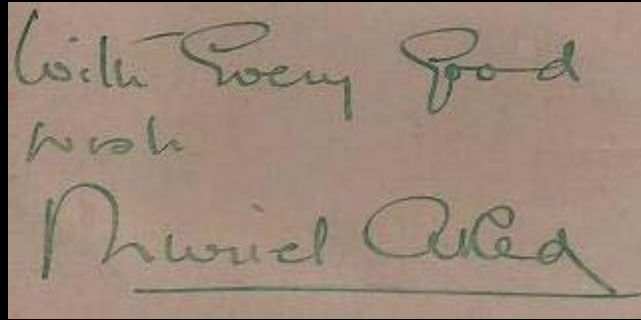 With Every Good
wish
Muriel Aked